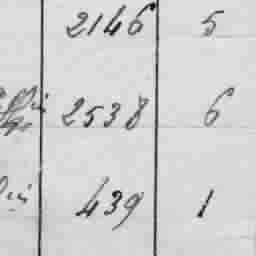 2146 5
2538 6
439 1